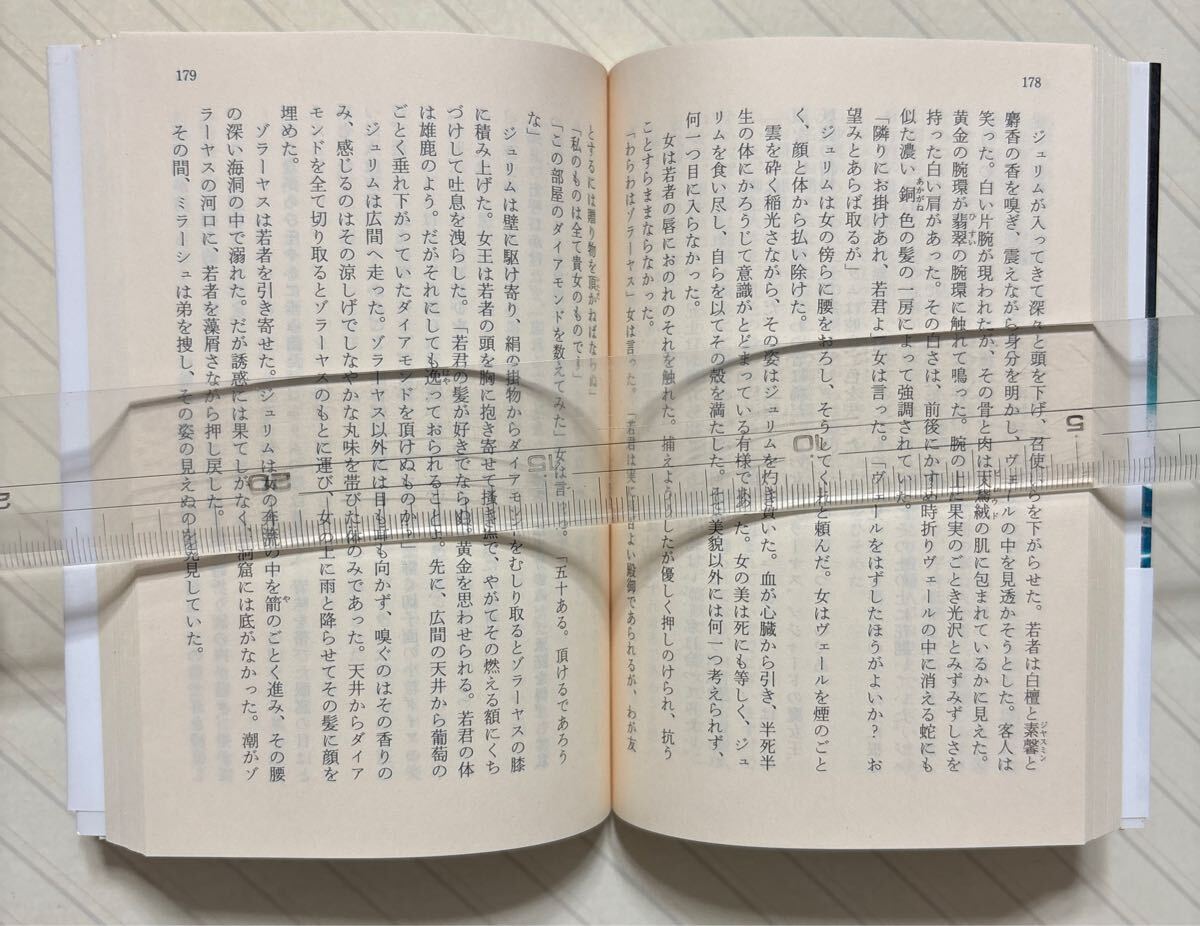 178
ジュリムが入ってきて深々と頭を下げ、召使いらを下がらせた。若者は白檀と素馨と
ジャスミン
麝香の香を嗅ぎ、震えながら身分を明かし、ヴェールの中を見透かそうとした。客人は
笑った。白い片腕が現われたが、その骨と肉は天鵞絨の肌に包まれているかに見えた。
ビロウド
黄金の腕環が翡翠の腕環に触れて鳴った。腕の上に果実のごとき光沢とみずみずしさを
ひすい
持った白い肩があった。その白さは、前後にかすめ時折りヴェールの中に消える蛇にも
似た濃い銅色の髪の一房によって強調されていた。
あかがね
「隣りにお掛けあれ、若君よ」女は言った。「ヴェールをはずしたほうがよいか? お
望みとあらば取るが」
ジュリムは女の傍らに腰をおろし、そうしてくれと頼んだ。女はヴェールを煙のごと
く、顔と体から払い除けた。
雲を砕く稲光さながら、その姿はジュリムを灼き貫いた。血が心臓から引き、半死半
生の体にかろうじて意識がとどまっている有様であった。女の美は死にも等しく、ジュ
リムを食い尽し、自らを以てその殻を満たした。その美貌以外には何一つ考えられず、
何一つ目に入らなかった。
女は若者の唇におのれのそれを触れた。捕えようとしたが優しく押しのけられ、抗う
ことすらままならなかった。
「わらわはゾラーヤス」女は言った。「若君は実に見目よい殿御であられるが、わが友
179
とするには贈り物を頂かねばならぬ」
「私のものは全て貴女のものです」
「この部屋のダイアモンドを数えてみた」女は言った。「五十ある。頂けるであろう
な」
ジュリムは壁に駆け寄り、絹の掛物からダイアモンドをむしり取るとゾラーヤスの膝
に積み上げた。女王は若者の頭を胸に抱き寄せて掻き撫で、やがてその燃える額にくち
づけして吐息を洩らした。「若君の髪が好きでならぬ。黄金を思わせられる。若君の体
は雄鹿のよう。だがそれにしても逸っておられること よ。先に、広間の天井から葡萄の
はや
ごとく垂れ下がっていたダイアモンドを頂けぬものか」
ジュリムは広間へ走った。ゾラーヤス以外には目も耳も向かず、嗅ぐのはその香りの
み、感じるのはその涼しげでしなやかな丸味を帯びた体のみであった。天井からダイア
モンドを全て切り取るとゾラーヤスのもとに運び、女の上に雨と降らせてその髪に顔を
埋めた。
ゾラーヤスは若者を引き寄せた。ジュリムは女の奔流の中を箭のごとく進み、その腰
や
の深い海洞の中で溺れた。だが誘惑には果てしがなく、洞窟には底がなかった。潮がゾ
ラーヤスの河口に、若者を藻屑さながら押し戻した。
その間、ミラーシュは弟を捜し、その姿の見えぬのを発見していた。
5
10
15
20